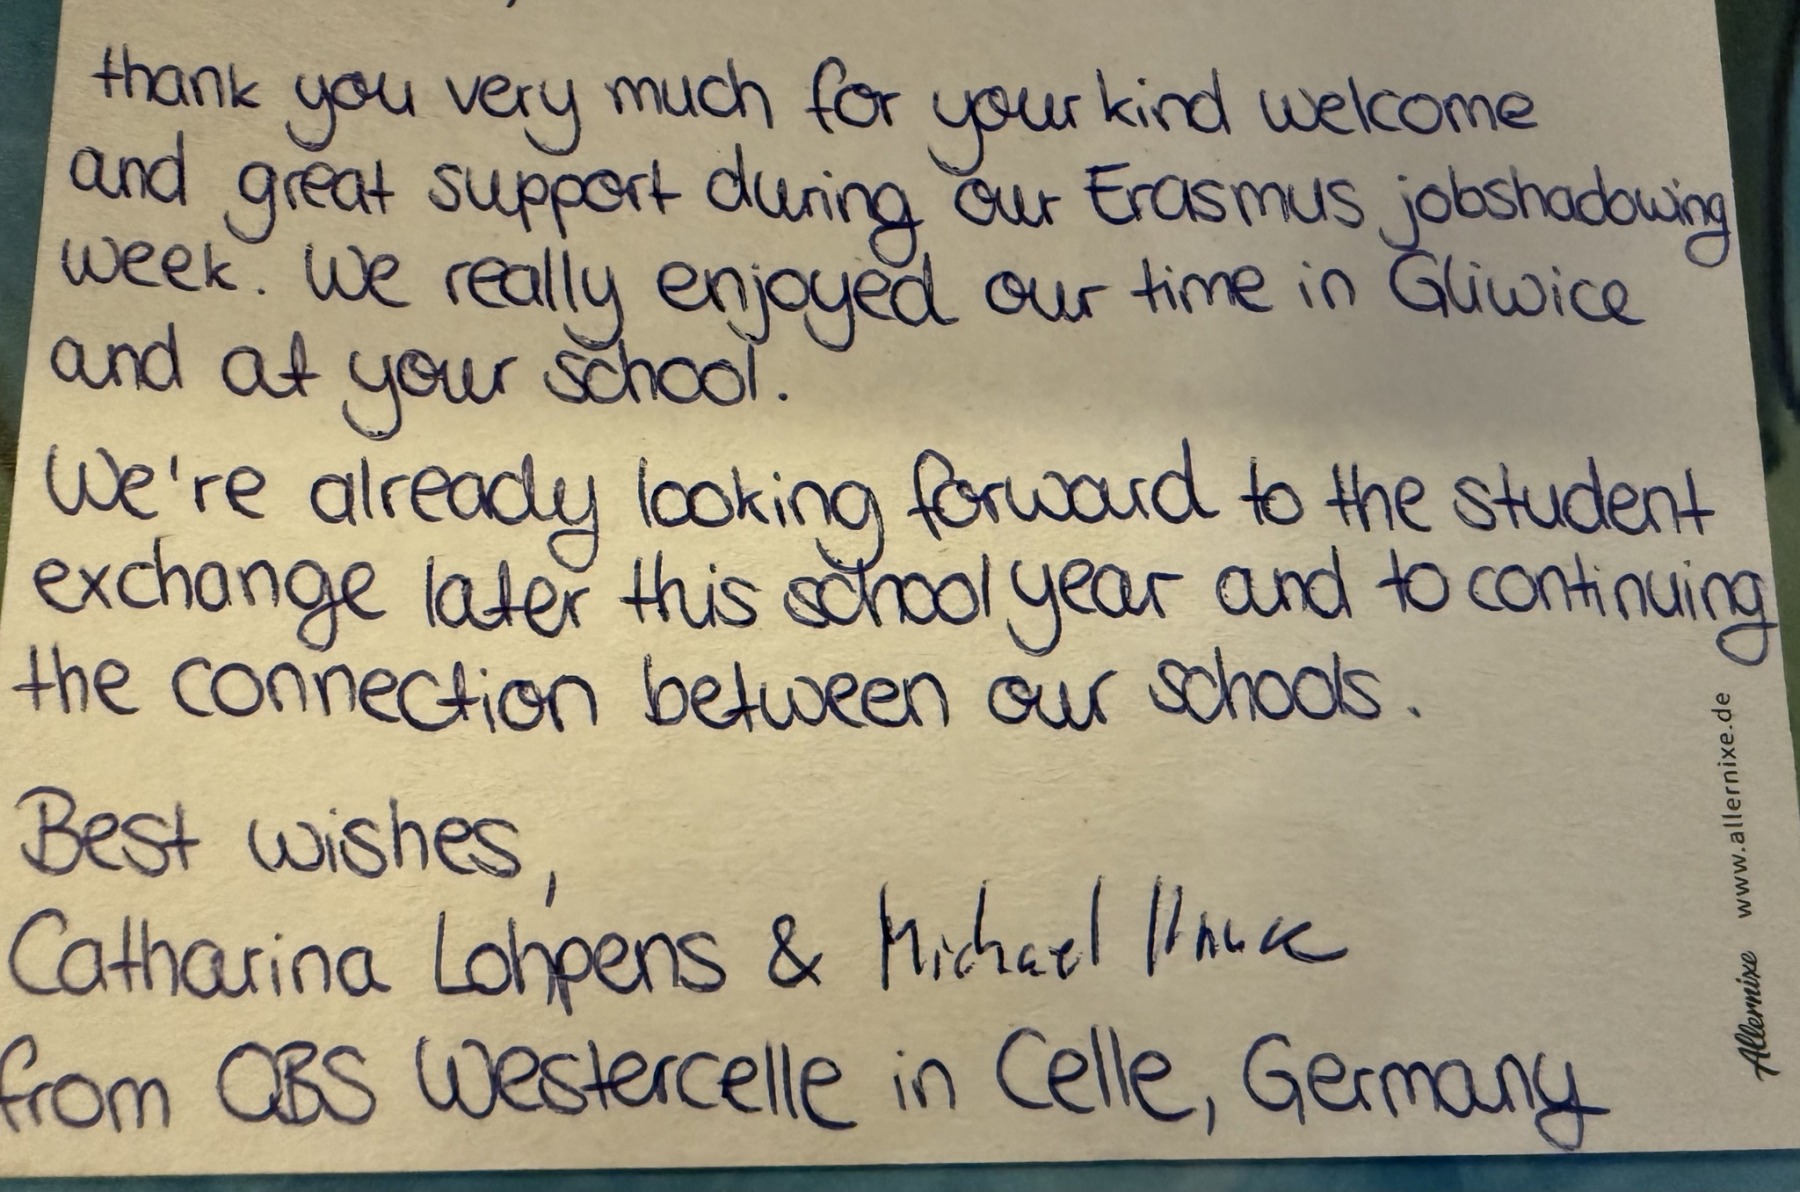 thank you very much for your kind welcome
and great support during our Erasmus jobshadowing
week. We really enjoyed our time in Gliwice
and at your school.
We're already looking forward to the student
exchange later this school year and to continuing
the connection between our schools.
Best wishes,
Catharina Lohpens & Michael
from OBS Westercelle in Celle, Germany
Allernixe www.allernixe.de